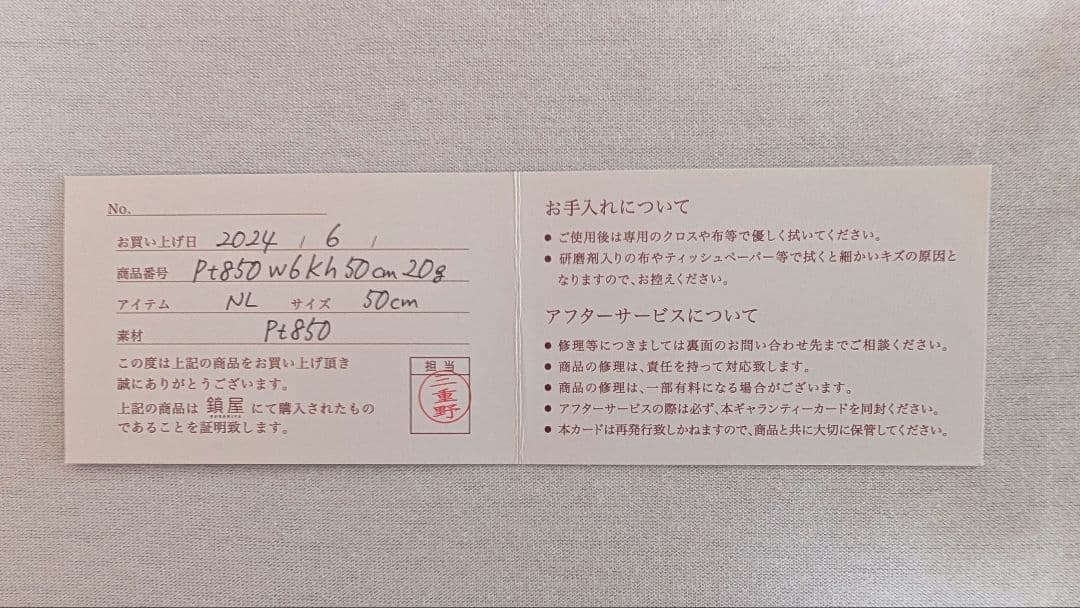 No.
お買い上げ日 2024 / 6 /
商品番号 Pt850 W6Kh 50cm 20g
アイテム NL サイズ 50cm
素材 Pt850
この度は上記の商品をお買い上げ頂き
誠にありがとうございます。
上記の商品は 鎖屋 にて購入されたもの
であることを証明致します。
担当
三重野
お手入れについて
● ご使用後は専用のクロスや布等で優しく拭いてください。
● 研磨剤入りの布やティッシュペーパー等で拭くと細かいキズの原因と
なりますので、お控えください。
アフターサービスについて
● 修理等につきましては裏面のお問い合わせ先までご相談ください。
● 商品の修理は、責任を持って対応致します。
● 商品の修理は、一部有料になる場合がございます。
● アフターサービスの際は必ず、本ギャランティーカードを同封ください。
● 本カードは再発行致しかねますので、商品と共に大切に保管してください。